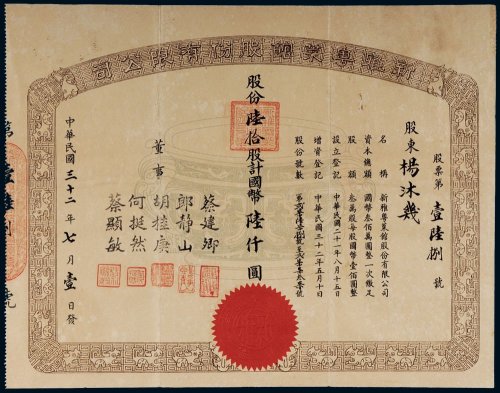 新雅粵菜館股份有限公司
股票第壹陸捌號
股東楊沐幾
名稱 新雅粵菜館股份有限公司
資本總額 國幣叁佰萬圓整一次繳足
股額 叁萬股每股國幣壹佰圓整
設立登記 中華民國二十一年八月十五日
增資登記 中華民國三十二年五月十日
股份號數
股份陸拾股計國幣陸仟圓
董事
蔡建卿
郎靜山
胡桂庚
何挺然
蔡顯敏
中華民國三十二年七月壹日發